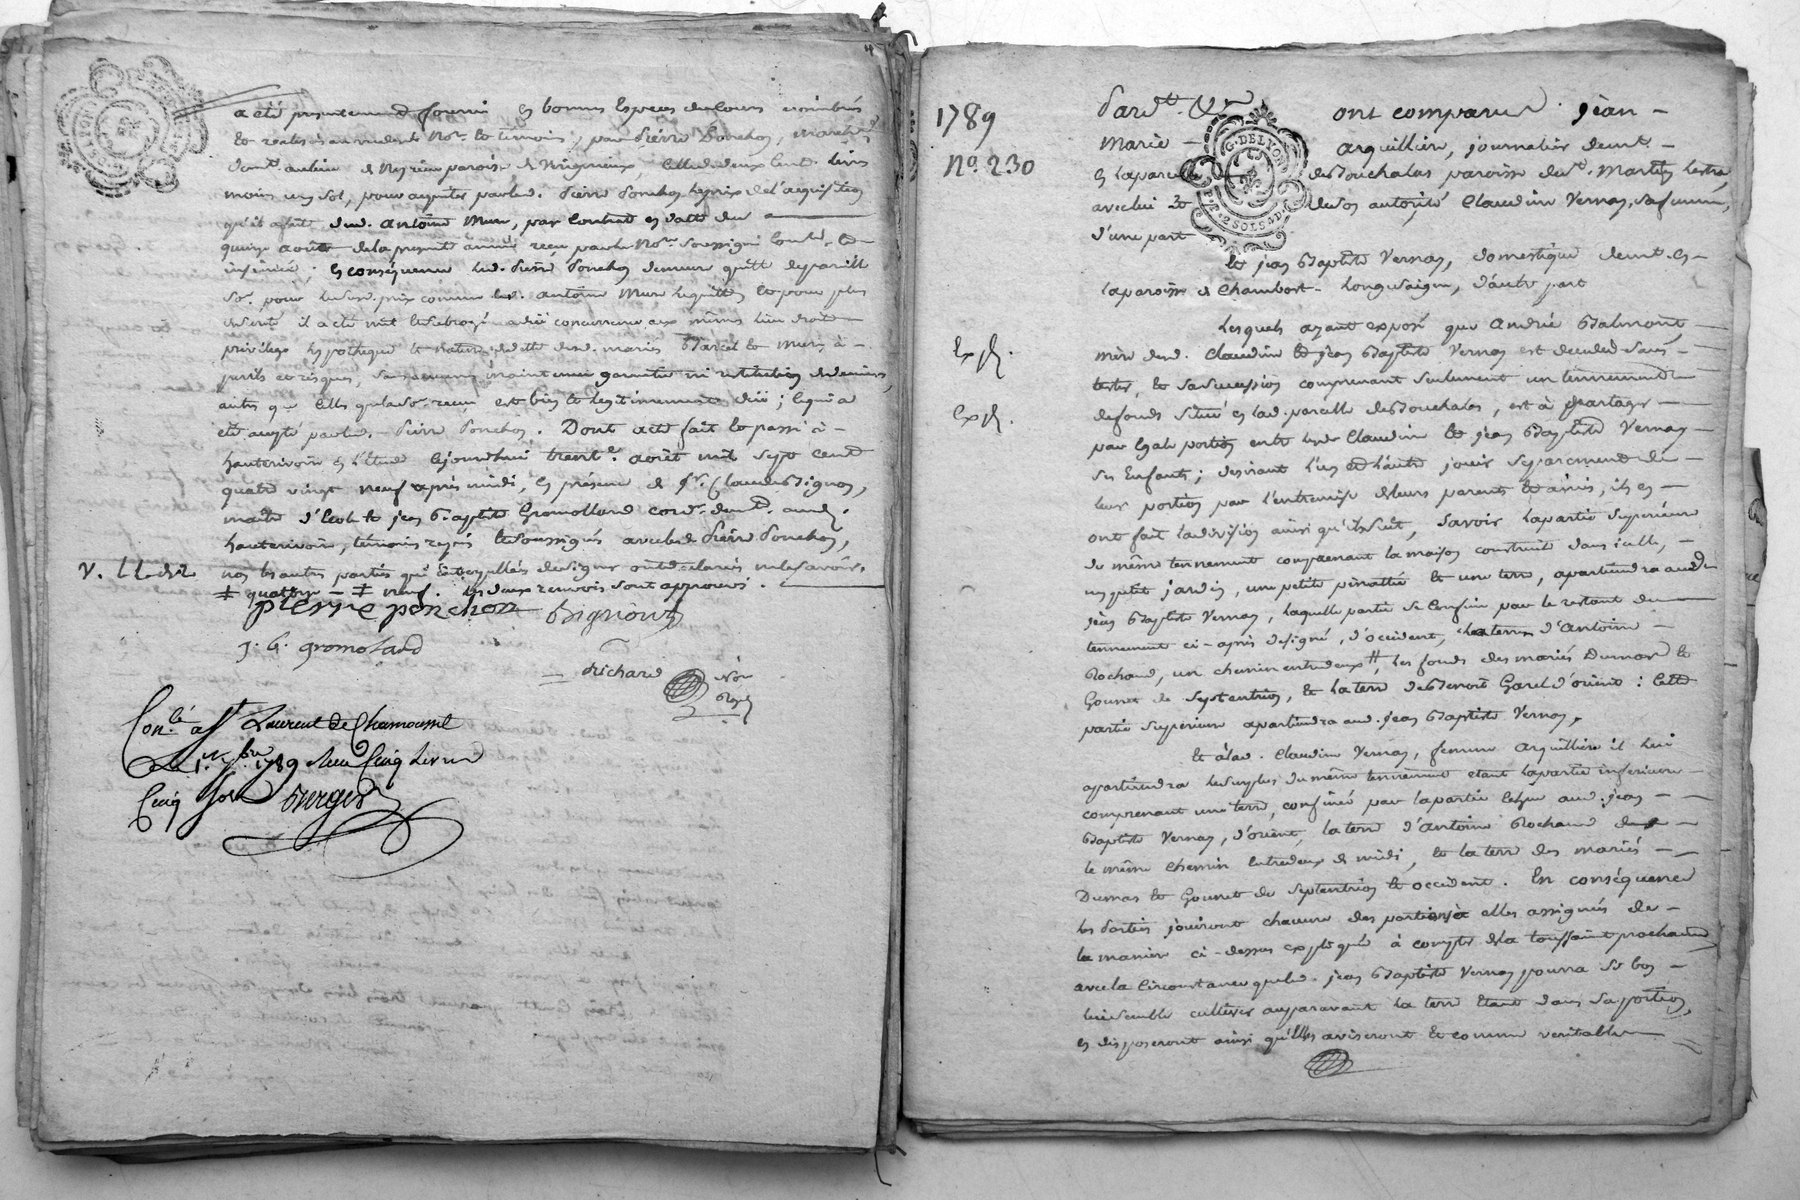 a été presentement fourni en bonnes Especes de Cours nombrés
et realisés au vû dud. No.re et temoins, par Pierre Ponchon, march.d
dem.t au lieu de paroisse de celle de deux Cent livres
moins un sol, pour acquiter par led. Pierre Ponchon le prix de l'acquisition
qu'il a fait dud. Antoine Mure, par Contrat en datte du
quinze aoùt de la presente année reçu par le No.re Soussigné Controlé et
insinué ; En conséquence led. Pierre Ponchon demeure quitte de pareille
So. pour lesusd. prix comme led. Antoine Mure le quitte, et pour plus
de sureté il a été mis et subrogé au lieu
privilege hypotheque et nature de dette desd. mariés et Mure à
perils et risques, sans aucune maintenue garantie ni restitution de deniers,
autre que celle que la So. reçue est bien et legitimement düe ; ce qui a
été accepté par led. Pierre Ponchon. Dont acte fait et passé à
hauterivoire en l'étude Cejourdhui trente aoùt mil sept cent
quatre vingt neuf après midi, En présence de S.r Claude Bignon,
maitre d'Ecole et jean Baptiste Gromolard cord.r dem.t aud.
hauterivoire, témoins requis et Soussignés avec led. Pierre Ponchon,
non les autres parties qui enquises de Signer ont declaré ne le Savoir,
‡ quatorze — ‡ neuf. les deux renvois sont approuvés.
pierre ponchon Bignon
J. B. gromolard
Richard No.re
Royal
Con.lé à S.t Laurent de Chamousset
Le 1.er 7.bre 1789 Reçu Cinq Livres
Cinq Sols Burger
1789
No. 230
Pard.t &c
G. DE LYON
2 SOLS 4 D.
ont comparu jean
Marie Arquillière, journalier dem.t
En la parcelle des Touchalas paroisse de S.t Martin Lestra,
avec lui et de son autorité Claudine Vernay, sa femme,
d'une part
Et jean Baptiste Vernay, domestique dem.t en
la paroisse de Chambost-Longesaigne, d'autre part
Exp.
Exp.
Lesquels ayant exposé que Andrée Balmont,
mère desd. Claudine et jean Baptiste Vernay est decedée Sans
tester, et sa Succession comprenant Seulement un tennement
de fonds Situé en lad. parcelle des Touchalas, est à partager
par Egale portion entre lesd. Claudine et jean Baptiste Vernay
Ses Enfants ; desirant l'un et l'autre jouir Separement de
leur portion par l'entremise de leurs parents et amis, ils en
ont fait la division ainsi qu'il Suit, Savoir la partie Superieure
du même tennement comprenant la maison construite dans icelle,
un petit jardin, une petite et une terre, apartiendra aud.
jean Baptiste Vernay, laquelle partie se Confine par le restant du
tennement ci-après designé, d'occident, la terre d'Antoine
Rochand, un chemin entredeux, les fonds des mariés Dumas et
Gounet de Septentrion, et la terre de Benoit Garel d'orient : Cette
partie Superieure apartiendra aud. jean Baptiste Vernay,
Et à lad. Claudine Vernay, femme Arquillière il lui
apartiendra le Surplus du même tennement etant la partie inferieure
comprenant une terre, confinée par la partie Echue aud. jean
Baptiste Vernay, d'orient, la terre d'Antoine Rochand
le même chemin Entredeux de midi, et la terre des mariés
Dumas et Gounet de Septentrion et occident. En conséquence
les Parties jouiront chacune des portions à elles assignées de
la manière ci-dessus expliquée à compter de la toussaint prochaine
avec la Circonstance que led. jean Baptiste Vernay pourra Si bon
lui semble cultiver auparavant la terre Etant dans Sa portion,
en disposeront ainsi qu'Elles aviseront et comme veritables